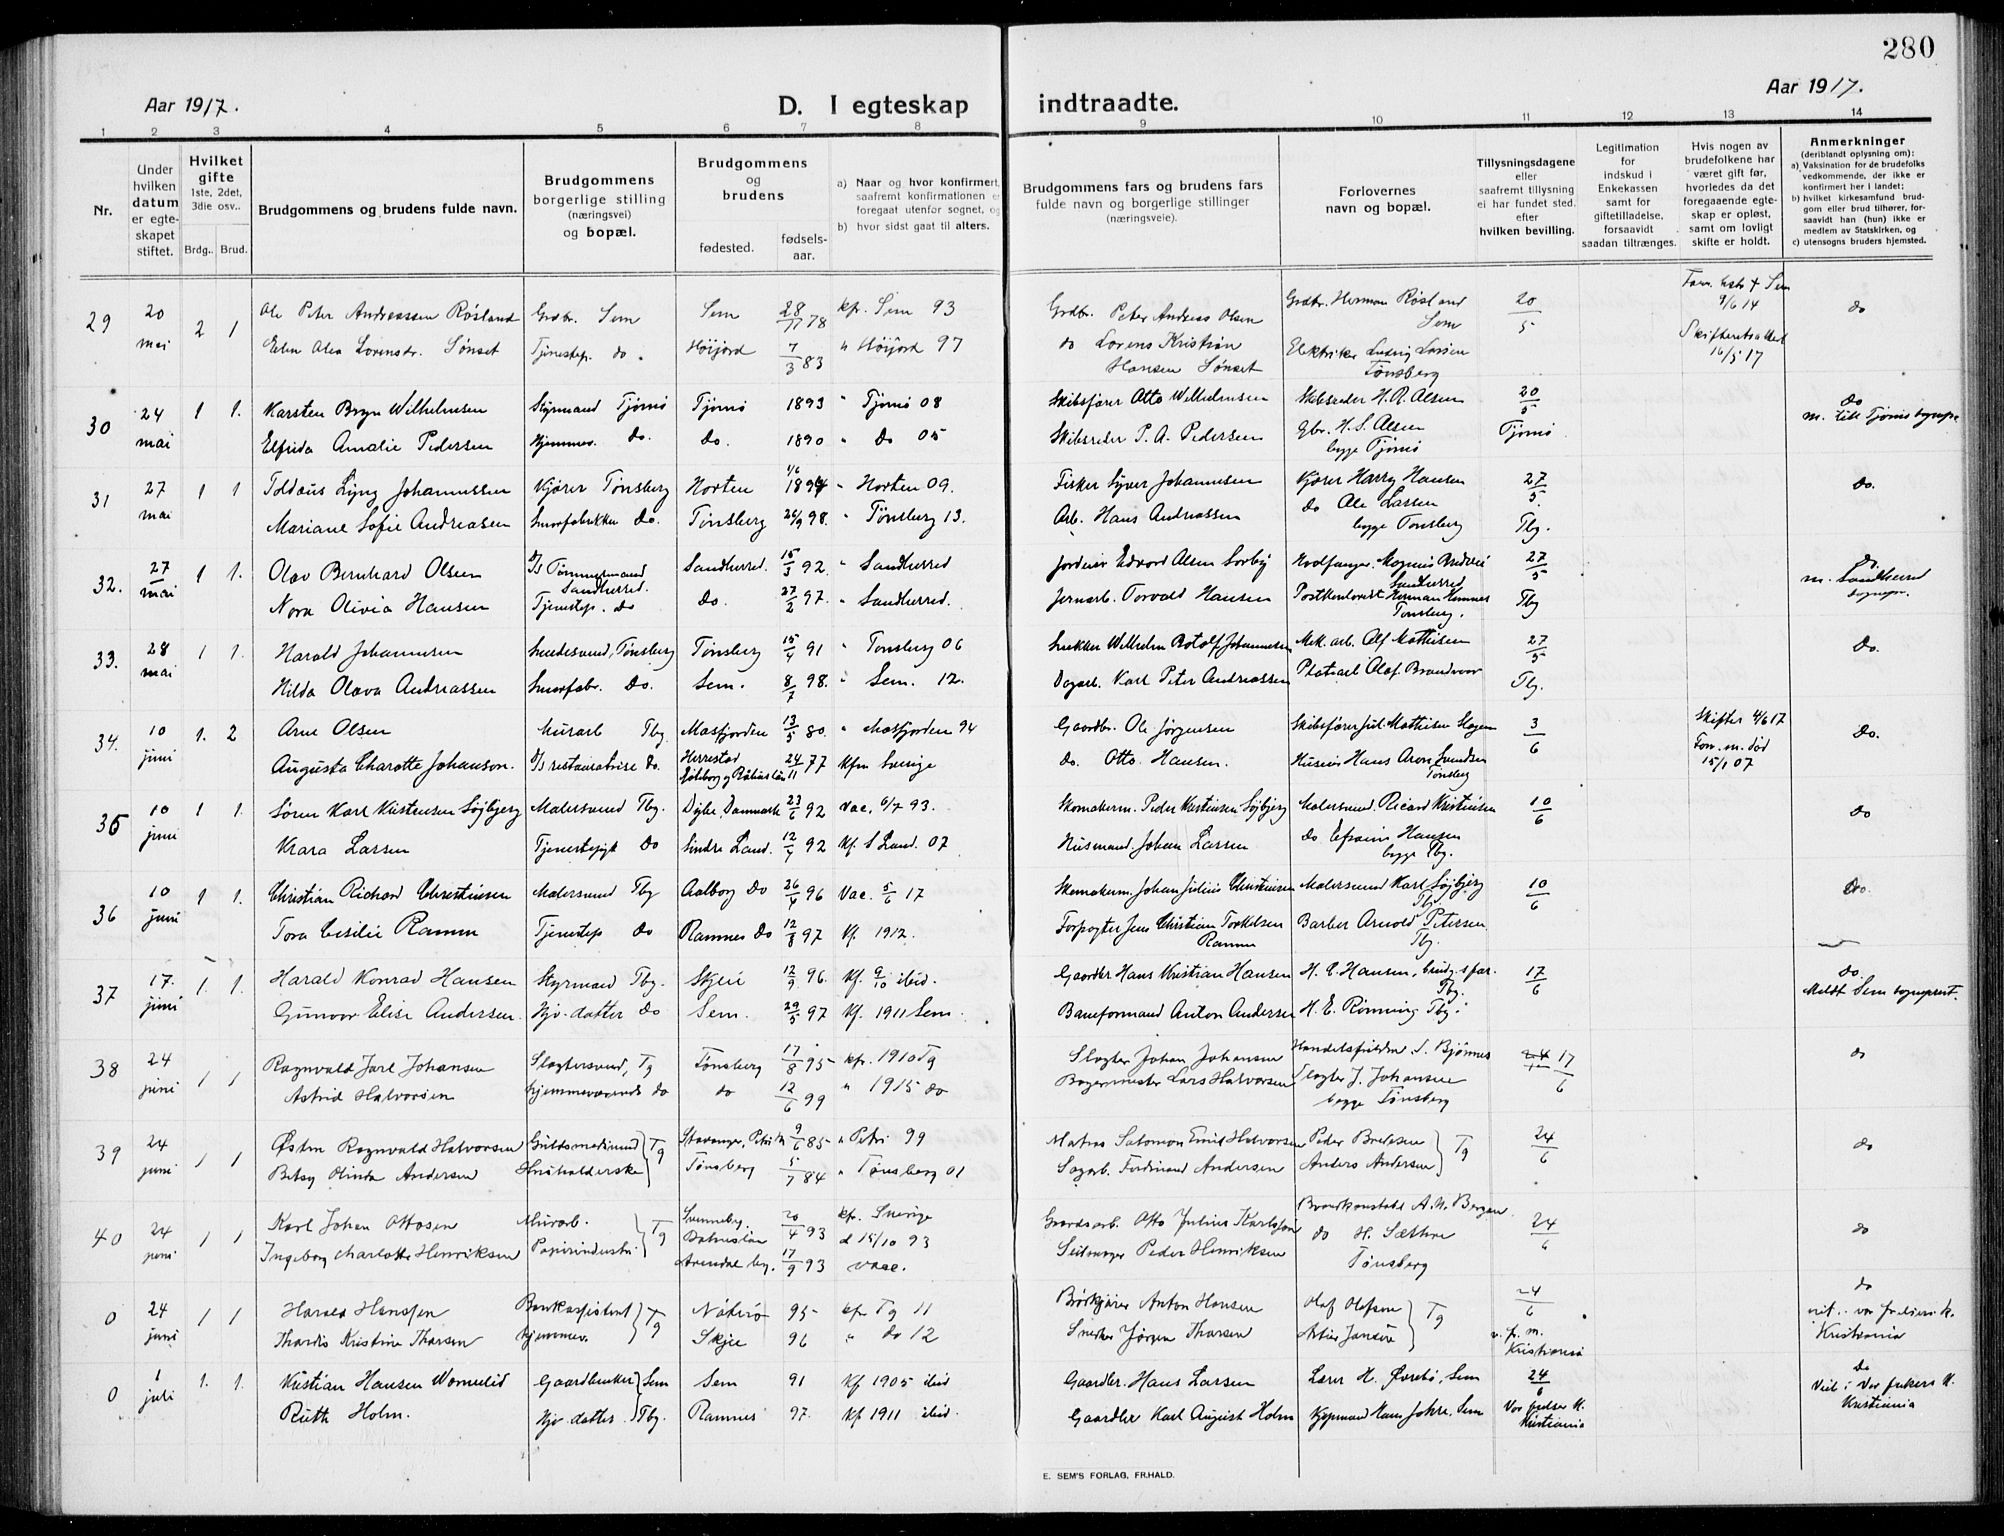 280
Aar 1917.
D. I egteskap indtraadte.
Aar 1917.
1 2 3 4 5 6 7 8 9 10 11 12 13 14
Nr.
Under hvilken datum er egteskapet stiftet.
Hvilket gifte 1ste, 2det, 3die osv..
Brdg.. Brud.
Brudgommens og brudens fulde navn.
Brudgommens borgerlige stilling (næringsvei) og bopæl.
Brudgommens og brudens
fødested.
fødsels-aar.
a) Naar og hvor konfirmert, saafremt konfirmationen er foregaat utenfor sognet, og
b) hvor sidst gaat til alters.
Brudgommens fars og brudens fars fulde navn og borgerlige stillinger (næringsveie).
Forlovernes navn og bopæl.
Tillysningsdagene eller saafremt tillysning ei har fundet sted. efter hvilken bevilling.
Legitimation for indskud i Enkekassen samt for giftetilladelse, forsaavidt saadan tiltrænges.
Hvis nogen av brudefolkene har været gift før, hvorledes da det foregaaende egteskap er opløst, samt om lovligt skifte er holdt.
Anmerkninger (deriblandt oplysning om):
a) Vaksination for de brudefolks vedkommende, der ikke er konfirmert her i landet;
b) hvilket kirkesamfund brudgom eller brud tilhører, forsaavidt han (hun) ikke er medlem av Statskirken, og
c) utensogns bruders hjemsted.
29 20 mai 2 1 Ole Peter Andreassen Røsland Grdbr. Sem Sem 28/11 78 kf. Sem 93 Grdbr. Peter Andreas Olsen Grdbr. Herman Røsland Sem 20/5 9/6 14 do
Lorensdr. Sønset Tjenestep. do. Høijord 7/3 83 " Høijord 97 do Lorens Kristian Hansen Sønset Elektriker Ludvig Larsen Tønsberg 16/5 17
30 24 mai 1 1. Karsten Bryn Wilhelmsen Styrmand Tjømø Tjømø 1893 " Tjømø 08 Skibsfører Otto Wilhelmsen Skibsreder H. R. Olsen 20/5 Do
Elfrida Amalie Pedersen Hjemmev. Do. Do. 1890 " Do 05 Skibsreder P. A. Pedersen Gbr. H. S. Olsen begge Tjømø Tjømø
31 27 mai 1 1 Johannessen Kjører Tønsberg Horten 1/6 1894 " Horten 09. Fisker Syver Johannesen Kjører Harry Hansen 27/5 Do.
Mariane Sofie Andreasen Do. Tønsberg 26/9 98. " Tønsberg 13. Arb. Hans Andreassen Do Ole Larsen begge Tønsberg Tbg.
32. 27 mai 1 1. Olav Bernhard Olsen Tømmermand Sandherred. Sandherred. 15/3 92 " Sandherred Edvard Olsen 27/5 Do. m. Sandherred
Nora Olivia Hansen Tjenestep. Do Do. 27/2 97. " Sandherred. Jernarb. Torvald Hansen Tønsberg. Tbg
33. 28 mai 1 1. Harald Johannesen Tønsberg Tønsberg 15/4 91 " Tønsberg 06 Snekker Wilhelm Johannesen Mek. arb. Alf Mathisen 27/5 Do.
Hilda Olava Andreassen Do. Sem. 8/7 98. " Sem. 12. Karl Peter Andreassen Olaf Tbg.
34. 10 juni 1. 2 Arne Olsen Murarb Tbg. Masfjorden 13/5 80. " Masfjorden 94 Gaardbr. Ole Jørgensen Skibsfører Jul. Mathisen Slagen 3/6 Skifter 4/6 17 Do.
Augusta Charotte Johanson. Do. Herrestad Gøteborg 24/11 77 Kfm Sverige Do. Otto Hansen. Hans Aron Svendsen Tønsberg For. m. død 15/1 07
35 10 juni 1 1. Søren Karl Kristensen Søjbjerg Malersvend Tbg. Danmark 23/6 92 Vac. 6/7 93. Skomakerm. Peder Kristensen Søjbjerg Malersvend. Ricard Kristensen 10/6 Do
Klara Larsen Tjenestepige Do Søndre Land. 12/4 92 Kf. S Land. 07 Husmand. Johan Larsen Do Efraim Hansen begge Tbg.
36 10 juni 1 1. Christian Richard Christensen Malersvend Tbg Aalborg Do 26/4 96 Vac. 5/6 17 Skomakerm. Johan Julius Christensen Malersvend Karl Søjbjerg Tbg. 10/6 Do.
Tora Cesilie Ramm Tjenestep Do Ramnes Do 12/8 97 Kf. 1912. Forpagter Jens Christian Torkelsen Ramm Barber Arnold Petersen Tbg.
37 17. juni 1. 1. Harald Konrad Hansen Styrmand Tbg. Skjee 12/9 96. Kf. 9/10 ibid. Gaardbr Hans Kristian Hansen H. C. Hansen, brudg.s far. Tbg. 17/6 Do. Meldt Sem sogneprest.
Gunvor Elise Andersen. Hjv. datter Do Sem. 29/5 97 Kf. 1911 Sem. Baneformand Anton Andersen H. E. Rønning Tbg.
38 24 juni 1 1 Ragnvald Jarl Johansen Slagtersvend, Tg Tønsberg 17/8 95 kf. 1910 Tg Slagter Johan Johansen S. Bjønnes 17/6 do
Astrid Halvorsen hjemmeværende do do 12/6 99 " 1915 do Bagermester Lars Halvorsen Slagter J. Johansen begge Tønsberg
39 24 juni 1 1 Østen Ragnvald Halvorsen Tg Stavanger, Petri 9/6 85 " Petri 99 Matros Salomon Emil Halvorsen Peder Bredesen Tg 24/6 do
Betsy Olinda Andersen Husholderske Tønsberg 5/7 84 " Tønsberg 01 Sagarb. Ferdinand Andersen Anders Andersen
40 24 juni 1 1 Karl Johan Ottosen Murarb. Tg Svenneby. Bohuslän 20/4 93 kf. Sverige d 15/10 93 Gaardsarb. Otto Julius Brandkonstabel A. M. Bergan 24/6 do
Ingeborg Charlotte Henriksen Papirindustri. Arendal by. 17/9 93 vacc. Peder Henriksen do H. Sæthre Tønsberg
0 24 juni 1 1 Harald Hanssen Bankassistent Tg Nøtterø 95 kf Tg 11 Anton Hansen Olaf Olafsen Tg 24/6 do
Thordis Kristine Thorsen hjemmev. Skjee 96 " do 12 Snedker Jørgen Thorsen Jansen v. f. m. Kristiania Kristiania
0 1 juli 1. 1. Kristian Hansen Gaardbruker Sem Sem 91 Kf 1905 ibid Gaardbr. Hans Larsen Lærer H. Øvrebø, Sem 24/6 Do
Ruth Holm. Hjv. datter. Tbg. Ramnes 97. Kf 1911 ibid. Gaardbr Karl August Holm Kjøpmand Hans Sem Vor frelser K. Kristiania Viet i Vor frelsers K. Kristiania
E. SEM'S FORLAG, FR.HALD.